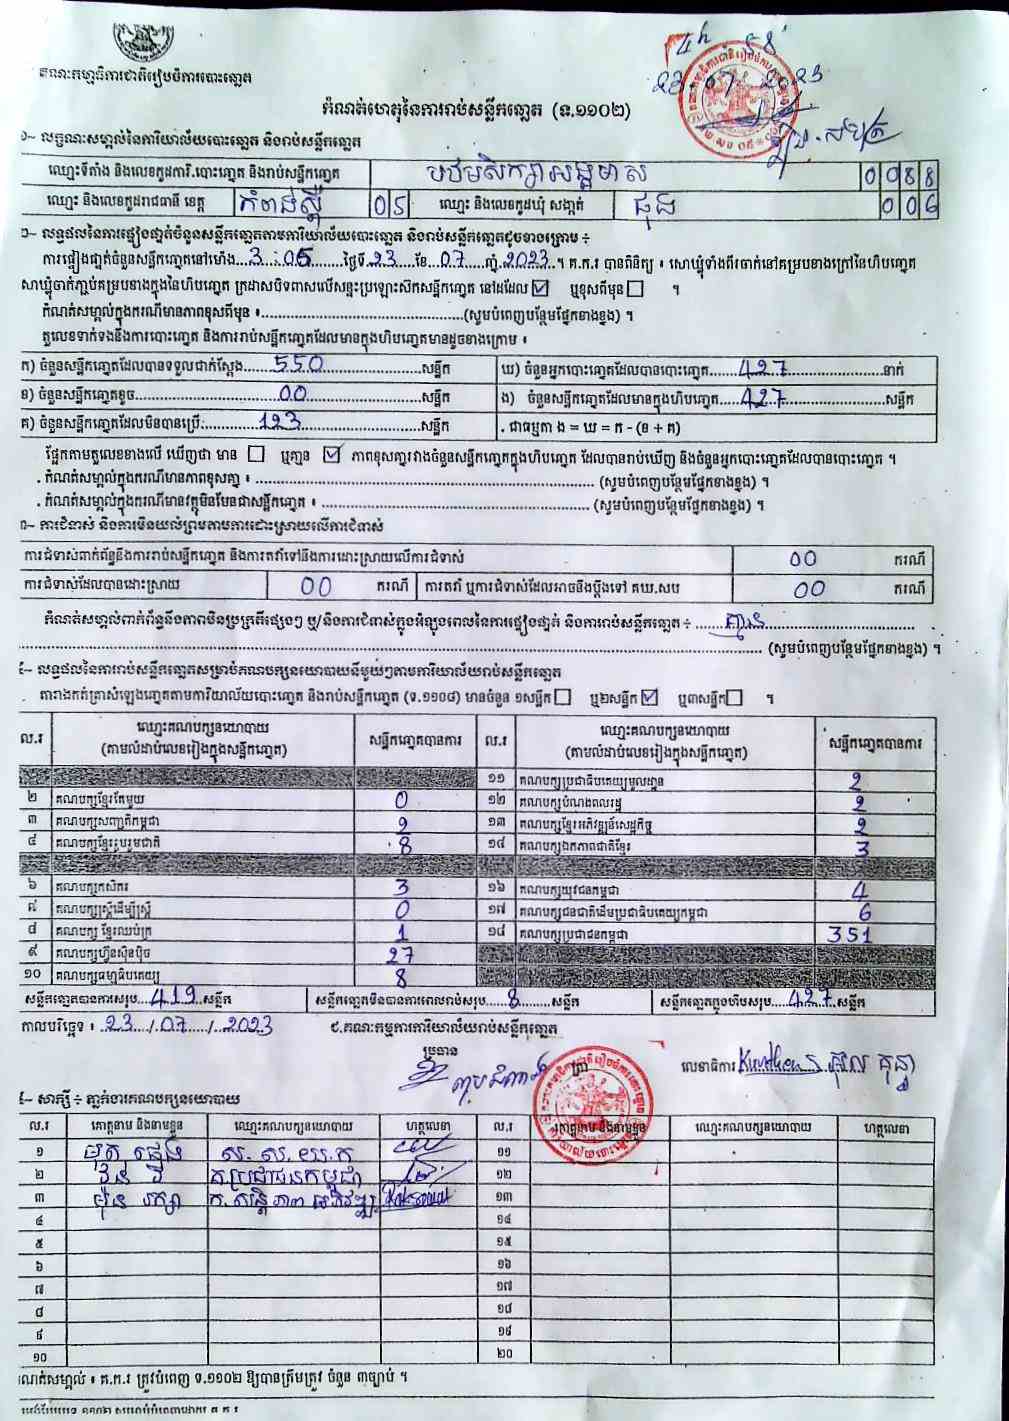 4h 58'
23-07-2023
គណៈកម្មាធិការជាតិរៀបចំការបោះឆ្នោត
កំណត់ហេតុនៃការរាប់សន្លឹកឆ្នោត (ទ.១១០២)
១- លក្ខណៈសម្គាល់នៃការិយាល័យបោះឆ្នោត និងរាប់សន្លឹកឆ្នោត
ឈ្មោះទីតាំង និងលេខកូដការិ.បោះឆ្នោត និងរាប់សន្លឹកឆ្នោត បឋមសិក្សាអង្គមាស 0 0 8 8
ឈ្មោះ និងលេខកូដរាជធានី ខេត្ត កំពង់ស្ពឺ 0 5 ឈ្មោះ និងលេខកូដឃុំ សង្កាត់ ផុង 0 0 6
២- លទ្ធផលនៃការផ្ទៀងផ្ទាត់ចំនួនសន្លឹកឆ្នោតតាមការិយាល័យបោះឆ្នោត និងរាប់សន្លឹកឆ្នោតដូចខាងក្រោម ÷
ការផ្ទៀងផ្ទាត់ចំនួនសន្លឹកឆ្នោតនៅម៉ោង...3:05......ថ្ងៃទី.23...ខែ..07...ឆ្នាំ.2023..។ គ.ក.រ បានពិនិត្យ ៖ សោឃ្មុំទាំងពីរចាក់នៅគម្របខាងក្រៅនៃហិបឆ្នោត
សោឃ្មុំចាក់ភ្ជាប់គម្របខាងក្នុងនៃហិបឆ្នោត ក្រដាសបិទពាសលើសន្ទះប្រឡោះស៊កសន្លឹកឆ្នោត នៅដដែល ☑ ឬខុសពីមុន ☐ ។
កំណត់សម្គាល់ក្នុងករណីមានភាពខុសពីមុន ៖..........(សូមបំពេញបន្ថែមផ្នែកខាងខ្នង) ។
តួលេខទាក់ទងនឹងការបោះឆ្នោត និងការរាប់សន្លឹកឆ្នោតដែលមានក្នុងហិបឆ្នោតមានដូចខាងក្រោម ៖
ក) ចំនួនសន្លឹកឆ្នោតដែលបានទទួលជាក់ស្តែង......550......សន្លឹក ឃ) ចំនួនអ្នកបោះឆ្នោតដែលបានបោះឆ្នោត......427......នាក់
ខ) ចំនួនសន្លឹកឆ្នោតខូច......00......សន្លឹក ង) ចំនួនសន្លឹកឆ្នោតដែលមានក្នុងហិបឆ្នោត......427......សន្លឹក
គ) ចំនួនសន្លឹកឆ្នោតដែលមិនបានប្រើ:......123......សន្លឹក . ជាធម្មតា ង = ឃ = ក - (ខ + គ)
ផ្អែកតាមតួលេខខាងលើ ឃើញថា មាន ☐ ឬគ្មាន ☑ ភាពខុសគ្នារវាងចំនួនសន្លឹកឆ្នោតក្នុងហិបឆ្នោត ដែលបានរាប់ឃើញ និងចំនួនអ្នកបោះឆ្នោតដែលបានបោះឆ្នោត ។
. កំណត់សម្គាល់ក្នុងករណីមានភាពខុសគ្នា ៖ .......... (សូមបំពេញបន្ថែមផ្នែកខាងខ្នង) ។
. កំណត់សម្គាល់ក្នុងករណីមានវត្ថុមិនមែនជាសន្លឹកឆ្នោត ៖ .......... (សូមបំពេញបន្ថែមផ្នែកខាងខ្នង) ។
៣- ការជំទាស់ និងការមិនយល់ព្រមតាមការដោះស្រាយលើការជំទាស់
ការជំទាស់ពាក់ព័ន្ធនឹងការរាប់សន្លឹកឆ្នោត និងការតវ៉ាទៅនឹងការដោះស្រាយលើការជំទាស់ 00 ករណី
ការជំទាស់ដែលបានដោះស្រាយ 00 ករណី ការតវ៉ា ឬការជំទាស់ដែលអាចនឹងប្តឹងទៅ គឃ.សប 00 ករណី
កំណត់សម្គាល់ពាក់ព័ន្ធនឹងភាពមិនប្រក្រតីផ្សេងៗ ឬ/និងការជំទាស់ក្នុងអំឡុងពេលនៃការផ្ទៀងផ្ទាត់ និងការរាប់សន្លឹកឆ្នោត ÷ ......គ្មាន......
.......... (សូមបំពេញបន្ថែមផ្នែកខាងខ្នង) ។
៤- លទ្ធផលនៃការរាប់សន្លឹកឆ្នោតសម្រាប់គណបក្សនយោបាយនីមួយៗតាមការិយាល័យរាប់សន្លឹកឆ្នោត
តារាងកត់ត្រាសំឡេងឆ្នោតតាមការិយាល័យបោះឆ្នោត និងរាប់សន្លឹកឆ្នោត (ទ.១១០៨) មានចំនួន ១សន្លឹក ☐ ឬ២សន្លឹក ☑ ឬ៣សន្លឹក ☐ ។
ល.រ ឈ្មោះគណបក្សនយោបាយ (តាមលំដាប់លេខរៀងក្នុងសន្លឹកឆ្នោត) សន្លឹកឆ្នោតបានការ ល.រ ឈ្មោះគណបក្សនយោបាយ (តាមលំដាប់លេខរៀងក្នុងសន្លឹកឆ្នោត) សន្លឹកឆ្នោតបានការ
១១ គណបក្សប្រជាធិបតេយ្យមូលដ្ឋាន 2
២ គណបក្សខ្មែរតែមួយ 0 ១២ គណបក្សបំណងពលរដ្ឋ 2
៣ គណបក្សសញ្ជាតិកម្ពុជា 2 ១៣ គណបក្សខ្មែរអភិវឌ្ឍន៍សេដ្ឋកិច្ច 2
៤ គណបក្សខ្មែររួបរួមជាតិ 8 ១៤ គណបក្សឯកភាពជាតិខ្មែរ 3
៦ គណបក្សកសិករ 3 ១៦ គណបក្សយុវជនកម្ពុជា 4
៧ គណបក្សស្ត្រីដើម្បីស្ត្រី 0 ១៧ គណបក្សជនជាតិដើមប្រជាធិបតេយ្យកម្ពុជា 6
៨ គណបក្ស ខ្មែរឈប់ក្រ 1 ១៨ គណបក្សប្រជាជនកម្ពុជា 351
៩ គណបក្សហ៊្វុនស៊ិនប៉ិច 27
១០ គណបក្សធម្មាធិបតេយ្យ 8
សន្លឹកឆ្នោតបានការសរុប...419...សន្លឹក សន្លឹកឆ្នោតមិនបានការពេលរាប់សរុប...8...សន្លឹក សន្លឹកឆ្នោតក្នុងហិបសរុប...427...សន្លឹក
កាលបរិច្ឆេទ ៖ 23/07/2023 ជ.គណៈកម្មការការិយាល័យរាប់សន្លឹកឆ្នោត
ប្រធាន ត្រា លេខាធិការ
៥- សាក្សី ÷ ភ្នាក់ងារគណបក្សនយោបាយ
ល.រ គោត្តនាម និងនាមខ្លួន ឈ្មោះគណបក្សនយោបាយ ហត្ថលេខា ល.រ គោត្តនាម និងនាមខ្លួន ឈ្មោះគណបក្សនយោបាយ ហត្ថលេខា
១ ១១
២ វ៉ន វី គ.ប្រជាជនកម្ពុជា ១២
៣ ម៉ុន រក្សា ១៣
៤ ១៤
៥ ១៥
៦ ១៦
៧ ១៧
៨ ១៨
៩ ១៩
១០ ២០
កំណត់សម្គាល់ ៖ គ.ក.រ ត្រូវបំពេញ ទ.១១០២ ឱ្យបានត្រឹមត្រូវ ចំនួន ៣ច្បាប់ ។